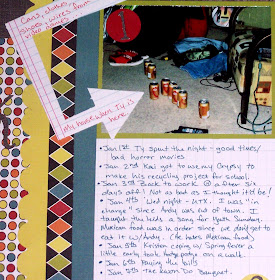 Cans, clothes,
shoes, wires from
video games
My house when Ty is
here.
• Jan 1st Ty spent the night - good times/
bad horror movies
• Jan 2nd Kai got to use my Gypsy to
make his recycling project for school.
• Jan 3rd Back to work @ a after six
days off! Not as bad as I thought it'd be!
• Jan 4th Wed night - LTX. I was "in
charge" since Andy was out of town. I
taught the kids a song for Mass Sunday.
Mexican food was in order since we don't get to
eat it w/Andy. (He hates Mexican food)
• Jan 5th Kristen coping w/ Spring fever a
little early took Hodge podge on a walk.
• Jan 6th Paying the bills
• Jan 5th The Kwon Do Banquet